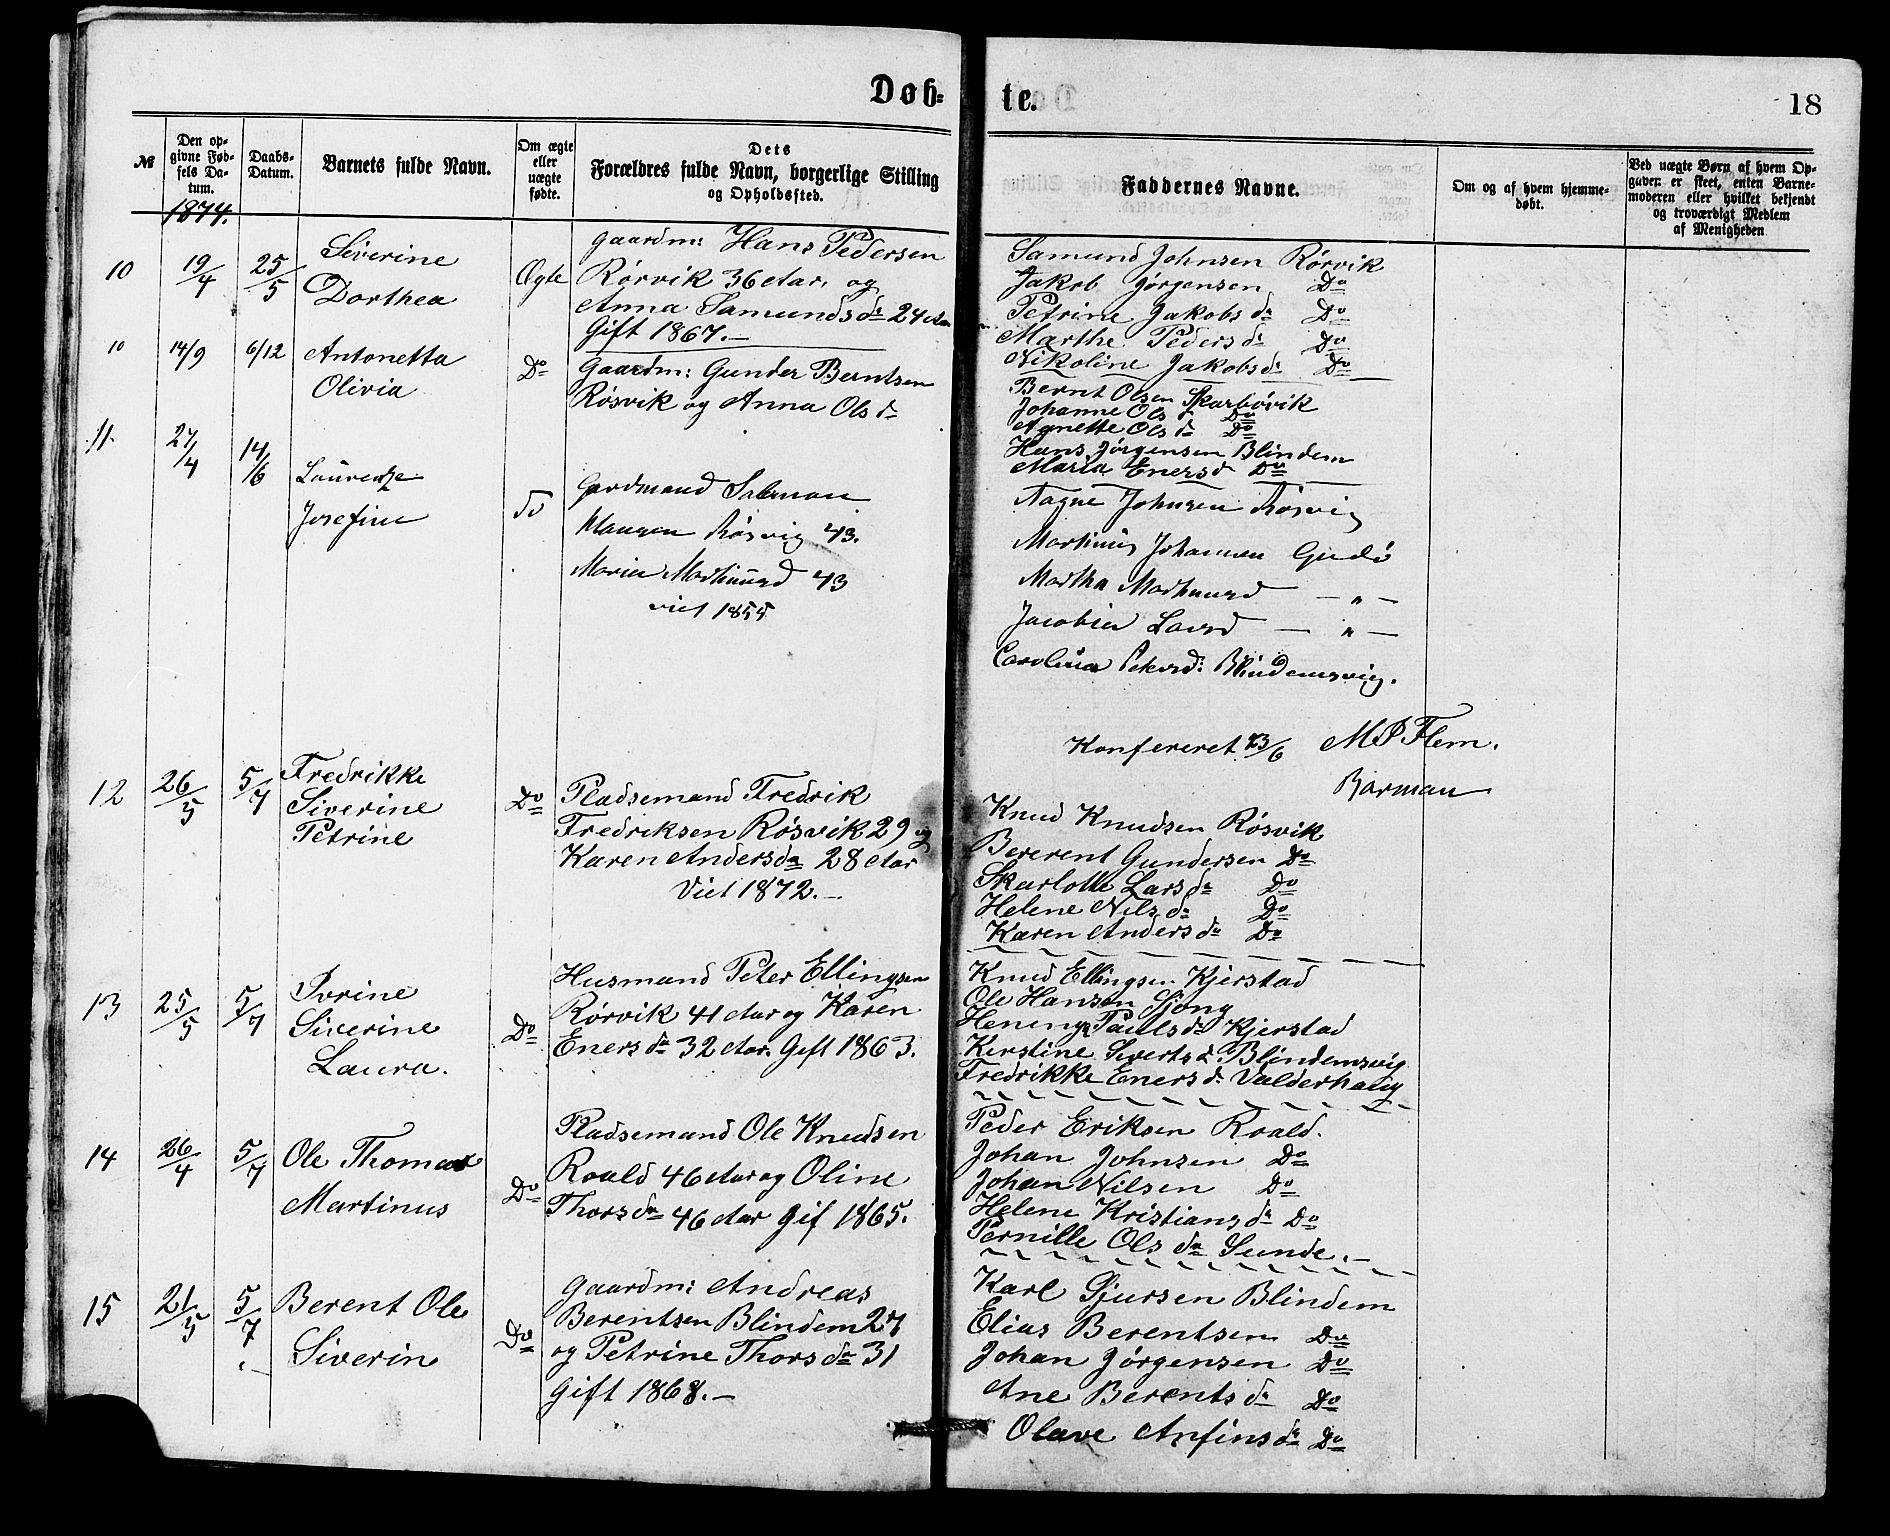 Døb-
te.
18
№
Den op-
givne Fød-
sels Da-
tum.
Daabs-
Datum.
Barnets fulde Navn.
Om ægte
eller
uægte
fødte.
Dets
Forældres fulde Navn, borgerlige Stilling
og Opholdssted.
Faddernes Navne.
Om og af hvem hjemme-
døbt.
Ved uægte Børn af hvem Op-
gaven er skeet, enten Barne-
moderen eller hvilket bekjendt
og troværdigt Medlem
af Menigheden
1874.
10
19/4
25/5
Siverine
Dorthea
Ægte
Gaardm: Hans Pedersen
Rørvik 36 Aar, og
Anna Samundsdr 24 Aar
Gift 1867.—
Samund Johnsen Rørvik
Jakob Jørgensen Do
Petrine Jakobsdr Do
Marthe Pedersdr Do
Nikoline Jakobsdr Do
10
14/9
6/12
Antonetta
Olivia
Do
Gaardm: Gunder Berntsen
Røsvik og Anna Olsdr
Bernt Olsen Skarbøvik
Johanne Olsd Do
Agnette Olsdr Do
Hans Jørgensen Blindem
Maria Enersd Do
11.
27/4
14/6
Laurentze
Josefine
do
Gardmand Salamon
Maugen Røsvig 43.
Maria Mathiasd 43
viet 1855
Aagne Johnsen Røsvig
Martinus Johannen Gudø
Martha — " —
Jacobia Larsd — " —
Carolina Petersd: Blindemsvig.
Konfereret 23/6 M P Flem.
Barman
12
26/5
5/7
Fredrikke
Siverine
Petrine
Do
Pladsemand Fredrik
Fredriksen Røsvik 29 og
Karen Andersdr 28 Aar
Viet 1872.—
Knud Knudsen Røsvik
Bererent Gundersen Do
Skarlotte Larsdr Do
Helene Nilsdr Do
Karen Andersdr Do
13
25/5
5/7
Ivrine
Siverine
Laura.
Do
Husmand Peter Ellingsen
Rørvik 41 Aar og Karen
Enersdr 32 Aar. Gift 1863.
Knud Ellingsen Kjerstad
Ole Hansen Sjong
Hening Paulsdr Kjerstad
Kerstine Sivertsd. Blindemsvig
Fredrikke Enersdr Valderhaug
14
26/4
5/7
Ole Thomas
Martinus
Do
Pladsemand Ole Knudsen
Roald 46 Aar og Oline
Thorsdr 46 Aar Gif 1865.
Peder Eriksen Roald.
Johan Johnsen Do
Johan Nilsen Do
Helene Kristiansdr Do
Pernille Olsdr Sunde.—
15
21/5
5/7
Berent Ole
Siverin
Do
Gaardm: Andreas
Berentsen Blindem 27
og Petrine Thorsdr 31
Gift 1868.—
Karl Gjursen Blindem
Elias Berentsen Do
Johan Jørgensen Do
Ane Berentsdr Do
Olave Anfinsdr Do